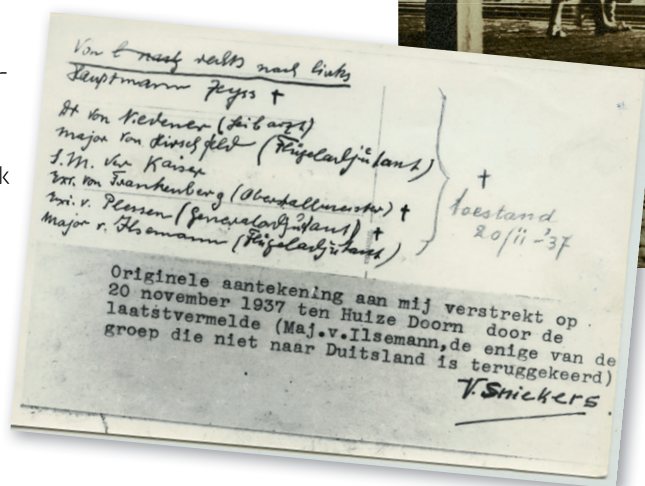 Von l nach rechts nach links
Hauptmann Zeyss †
Dr von Niedener (Leibarzt)
Major von Hirschfeld (Flügeladjutant)
S.M. der Kaiser
Exz. von Frankenberg (Oberstallmeister) †
Exz. v. Plessen (Generaladjutant) †
Major v. Ilsemann (Flügeladjutant)
†
toestand
20/11-'37
Originele aantekening aan mij verstrekt op
20 november 1937 ten Huize Doorn door de
laatstvermelde (Maj.v.Ilsemann,de enige van de
groep die niet naar Duitsland is teruggekeerd)
V. Snickers.
k